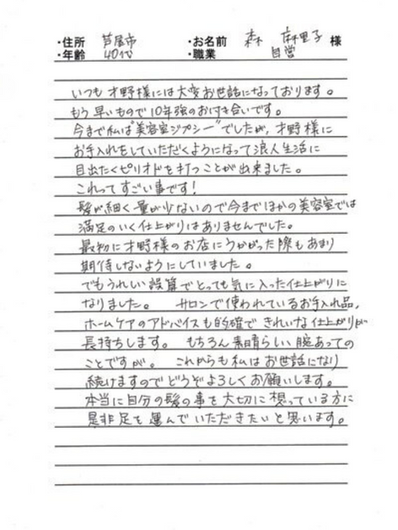 ・住所 芦屋市 ・お名前 森 麻里子 様
・年齢 40代 ・職業 自営
いつも才野様には大変お世話になっております。
もう早いもので10年強のお付き合いです。
今まで私は"美容室ジプシー"でしたが、才野様に
お手入れをしていただくようになって浪人生活に
目出たくピリオドを打つことが出来ました。
これってすごい事です!
髪が細く量が少ないので今までほかの美容室では
満足のいく仕上がりはありませんでした。
最初に才野様のお店にうかがった際もあまり
期待しないようにしていました。
でもうれしい誤算でとっても気に入った仕上がりに
なりました。 サロンで使われているお手入れ品、
ホームケアのアドバイスも的確できれいな仕上がりが
長持ちします。 もちろん素晴らしい腕あっての
ことですが。 これからも私はお世話になり
続けますのでどうぞよろしくお願いします。
本当に自分の髪の事を大切に想っている方に
是非足を運んでいただきたいと思います。